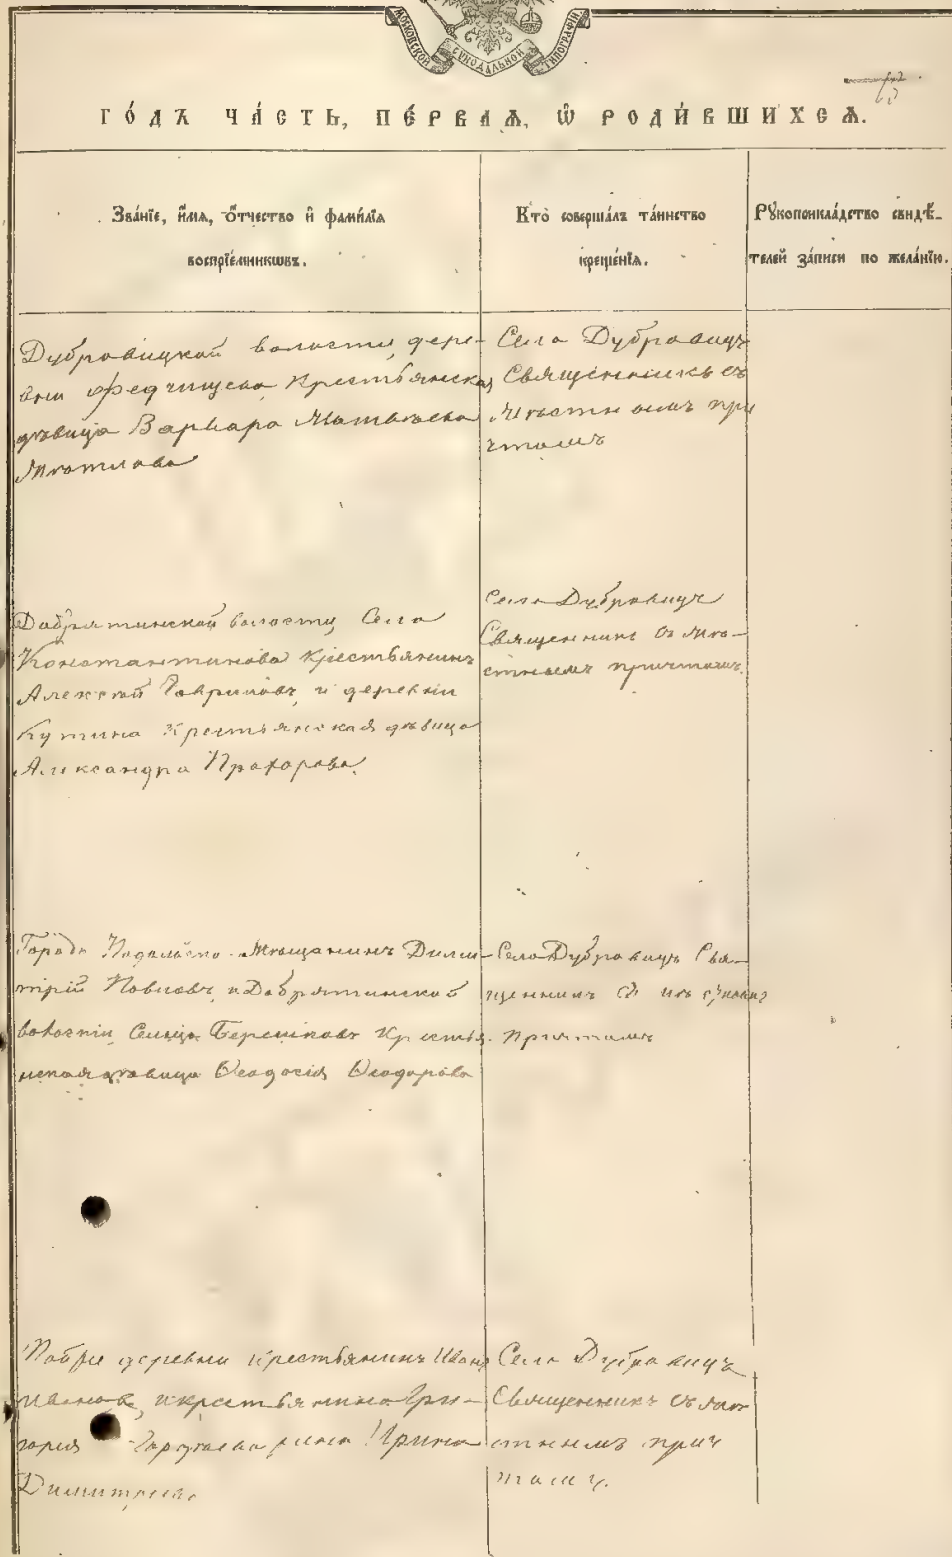 МОСКОВСКОЙ СѴНОДАЛЬНОЙ ТИПОГРАФІИ.
ГО́ДЪ ЧА́СТЬ, ПЕ́РВАѦ, Ѽ РОДИ́ВШИХСѦ.
Зва́нїе, и҆́мѧ, ѻ҆́тчество и҆ фами́лїѧ
воспрїе́мникѡвъ.
Кто̀ соверша́лъ та́инство
креще́нїѧ.
Рꙋкоприкла́дство свидѣ́-
телей за́писи по жела́нїю.
Дубровицкой волости, дере-
вни Федчищева крестьянская
дѣвица Варвара Матвѣева
Мѣтлова
Село Дубровицъ
Священникъ съ
Мѣстнымъ при
чтомъ
Добрятинской волости, Села
Константинова крестьянинъ
Алексѣй Гавриловъ, и деревни
Кутина крестьянская дѣвица
Александра Прохорова.
Села Дубровицъ
Священникъ съ мѣ-
стнымъ причтомъ.
Города Подольска Мѣщанинъ Дими-
трій Павловъ, и Добрятинской
волости, Сельца Беряшкова Крестья-
нская дѣвица Ѳеодосія Ѳеодорова
Села Дубровицъ Свя-
щенникъ съ мѣстнымъ
причтомъ
деревни крестьянинъ Иванъ
Ивановъ, и крестьянина Гри-
горія жена Ирина
Димитріева
Села Дубровицъ
Священникъ съ мѣ
стнымъ прич
томъ.